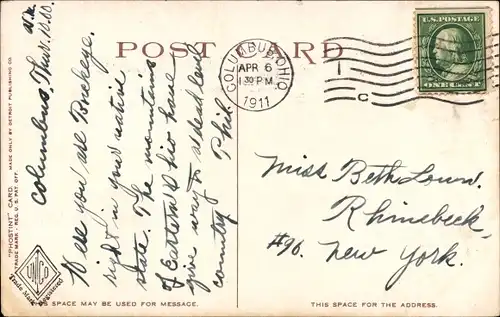 POST CARD
COLUMBUS, OHIO
APR 6
1 30 PM
1911
C
U.S. POSTAGE
ONE CENT
Columbus, Thur.
Well you are Buckeye
right in your native
state. The mountains
of Eastern Ohio have
give way to a dead level
country Phil.
Miss Beth Lown.
Rhinebeck,
#96. New York.
"PHOSTINT" CARD. MADE ONLY BY DETROIT PUBLISHING CO.
TRADE MARK - REG. U.S. PAT. OFF.
Trade Mark Registered
THIS SPACE MAY BE USED FOR MESSAGE.
THIS SPACE FOR THE ADDRESS.